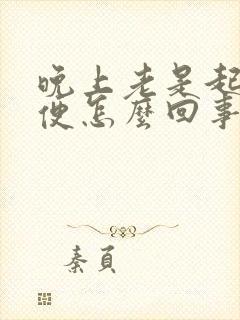 晚上老是起
便怎麼回事
秦頁